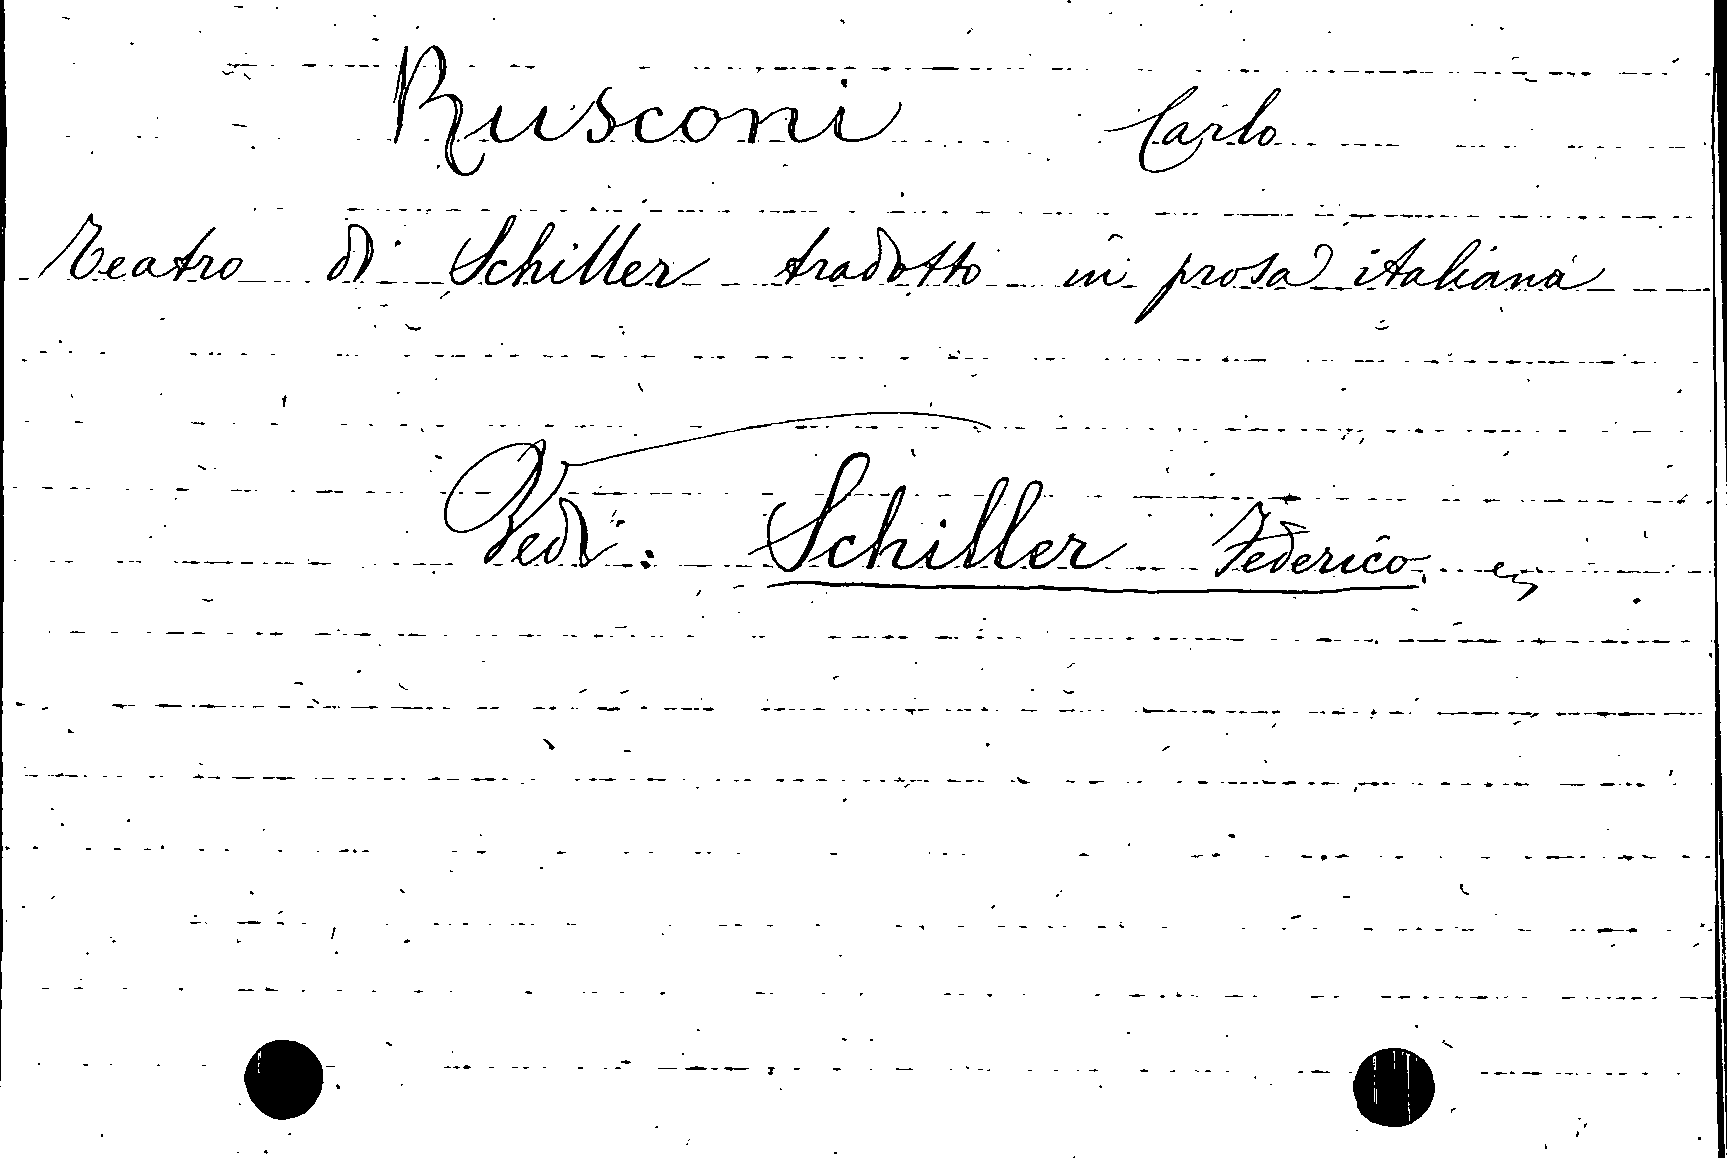 Rusconi Carlo
Teatro di Schiller tradotto in prosa italiana
Vedi: Schiller Federico,